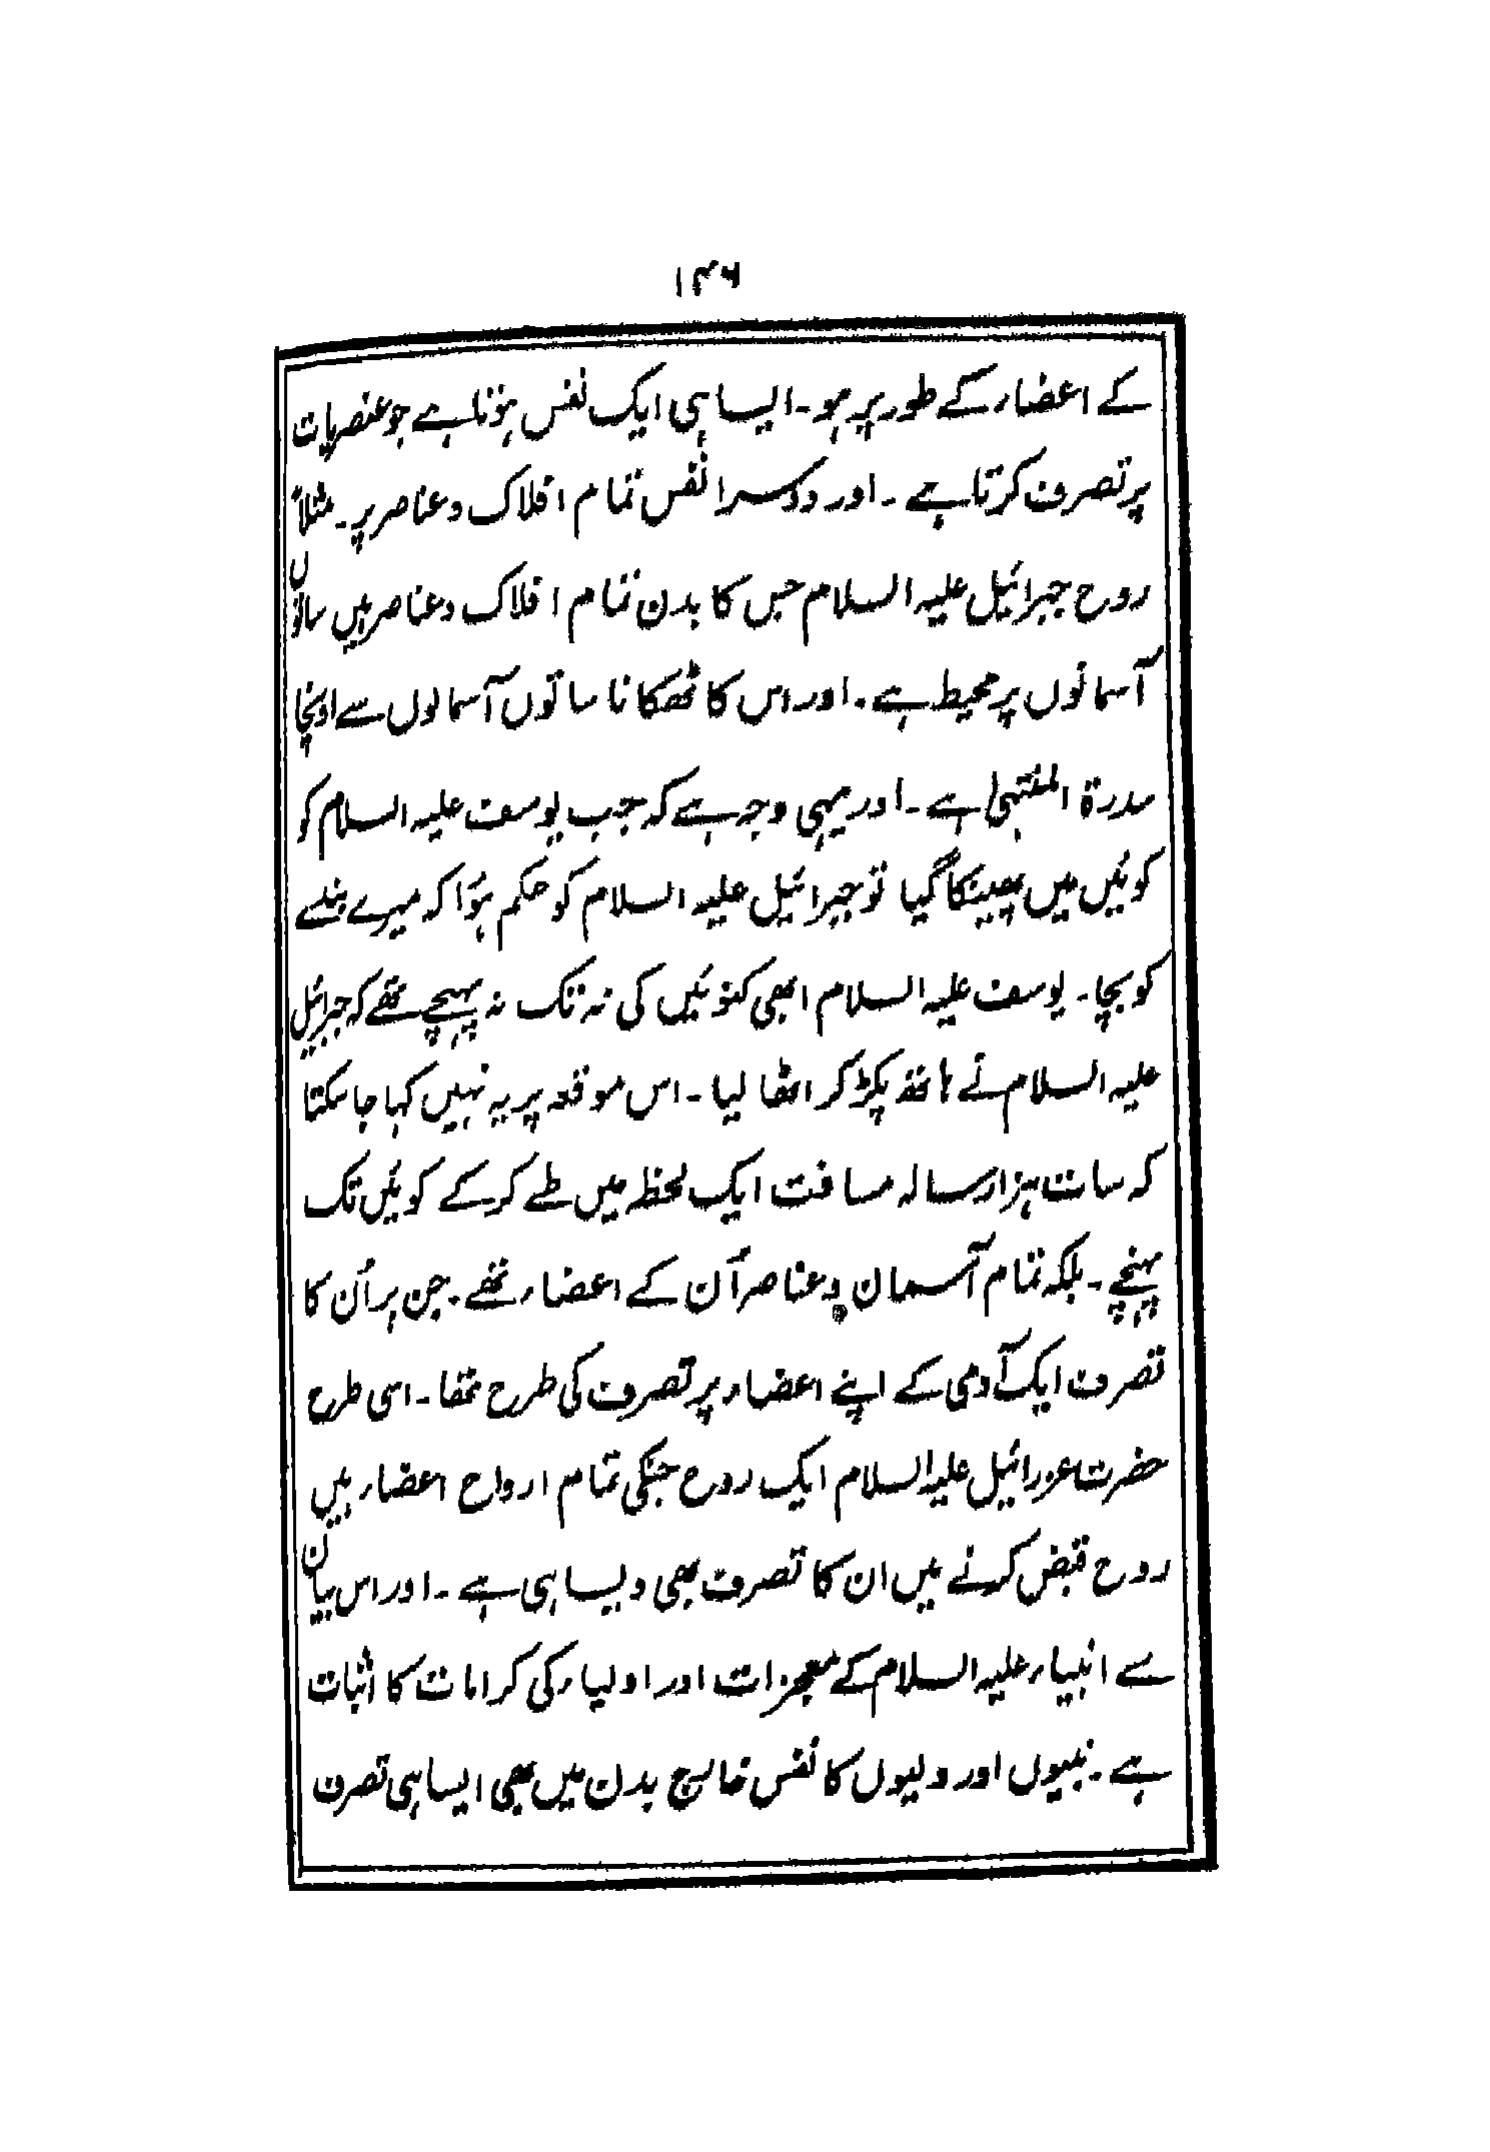 ۱۴۶
کے اعضاء کے طور پر ہو۔ ایسا ہی ایک نفس ہوتا ہے جو عنصریات
پر تصرف کرتا ہے ۔ اور دوسرا نفس تمام افلاک و عناصر پر۔ مثلاً
روح جبرائیل علیہ السلام جس کا بدن تمام افلاک و عناصر ہیں ساتوں
آسمانوں پر محیط ہے۔ اور اس کا ٹھکانا ساتوں آسمانوں سے اونچا
سدرۃ المنتہیٰ ہے ۔ اور یہی وجہ ہے کہ جب یوسف علیہ السلام کو
کوئیں میں پھینکا گیا تو جبرائیل علیہ السلام کو حکم ہوا کہ میرے بندے
کو بچا۔ یوسف علیہ السلام ابھی کنوئیں کی تہ تک نہ پہنچے تھے کہ جبرائیل
علیہ السلام نے ہاتھ پکڑ کر اٹھا لیا ۔ اس موقعہ پر یہ نہیں کہا جا سکتا
کہ سات ہزار سالہ مسافت ایک لحظہ میں طے کر کے کوئیں تک
پہنچے ۔ بلکہ تمام آسمان و عناصر اُن کے اعضاء تھے ۔ جن پر اُن کا
تصرف ایک آدمی کے اپنے اعضاء پر تصرف کی طرح تھا ۔ اسی طرح
حضرت عزرائیل علیہ السلام ایک روح جنکی تمام ارواح اعضاء ہیں
روح قبض کرنے میں ان کا تصرف بھی ویسا ہی ہے ۔ اور اس بیان
سے انبیاء علیہ السلام کے معجزات اور اولیاء کی کرامات کا اثبات
ہے ۔ نبیوں اور ولیوں کا نفس خارج بدن میں بھی ایسا ہی تصرف